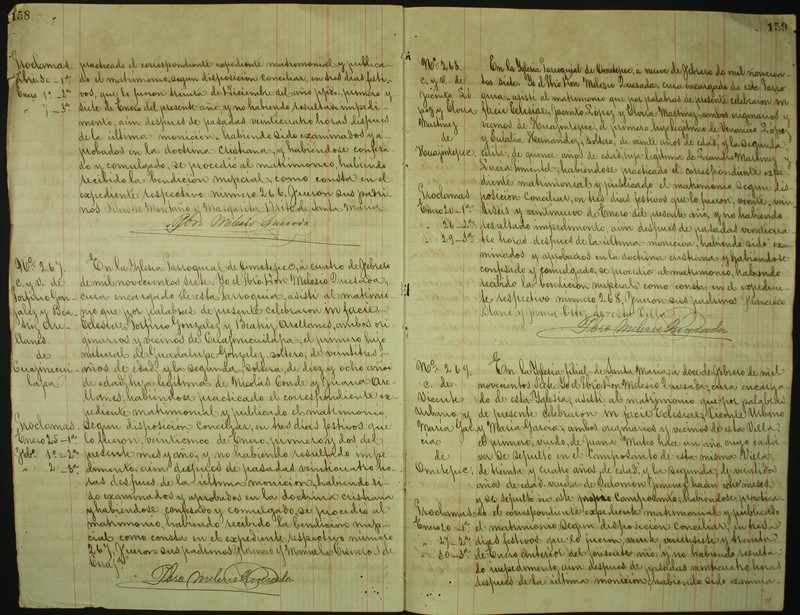 158
Proclamas
practicado el correspondiente expediente matrimonial y publica-
do el matrimonio, segun disposicion conciliar, en tres dias festi-
vos, que lo fueron treinta de Diciembre del año ppdo, primero y
siete de Enero del presente año, y no habiendo resultado impedi-
mento, aun despues de pasadas veinticuatro horas despues
de la última monicion, habiendo sido examinados y a-
probados en la doctrina cristiana, y habiendose confesa-
do y comulgado, se procedió al matrimonio, habiendo
recibido la bendicion nupcial, como consta en el
expediente respectivo número 266. Fueron sus padri-
nos Montaño y Margarita de Santa María
Pbro Melesio Quesada
No. 267.
c. y v. de
Porfirio Gon-
zalez y Bea-
triz Are-
llanes
de
Cuajinicui-
lapa
Proclamas
Enero 25-1a
Febo. 1o-2a
" 2-3a
En la Iglesia Parroquial de Ometepec, á cuatro de Febrero
de mil novecientos siete. Yo el Pbro Don Melesio Quesada,
cura encargado de esta Parroquia, asistí al matrimo-
nio que por palabras de presente celebraron in facie
Eclesiæ, Porfirio Gonzalez y Beatriz Arellanes, ambos ori-
ginarios y vecinos de Cuajinicuilapa, el primero hijo
natural de Guadalupe Gonzalez, soltero, de veintitres
años de edad, y la segunda, soltera, de diez y ocho años
de edad, hija legítima de Nicolas Conde y Juana Are-
llanes, habiendose practicado el correspondiente ex-
pediente matrimonial y publicado el matrimonio,
segun disposicion Conciliar, en tres dias festivos que
lo fueron, veinticinco de Enero, primero y dos del
presente mes y año, y no habiendo resultado impe-
dimento, aun despues de pasadas veinticuatro ho-
ras despues de la última monicion, habiendo si-
do examinados y aprobados en la doctrina cristiana
y habiendose confesado y comulgado, se procedió al
matrimonio, habiendo recibido la bendicion nup-
cial como consta en el expediente respectivo número
267. Fueron sus padrinos y Manuela Cisneros de
Cuaja.
Pbro Melesio Quesada
159
No. 268.
c. y v. de
Jacinto Lo-
pez y Gloria
Martinez
de
Huajintepec.
Proclamas
Enero 20-1a
" 26-2a
" 29-3a
En la Iglesia Parroquial de Ometepec, á nueve de Febrero de mil novecien-
tos siete. Yo el Pbro Don Melesio Quesada, cura encargado de esta Parro-
quia, asistí al matrimonio que por palabras de presente celebraron in
facie Eclesiæ, Jacinto López y Gloria Martinez, ambos originarios y
vecinos de Huajintepec, el primero, hijo legítimo de Venancio López
y Eulalia Hernandez, soltero, de veinte años de edad, y la segunda
célibe, de quince años de edad, hija legítima de Martinez y
Lucia habiendose practicado el correspondiente expe-
diente matrimonial y publicado el matrimonio segun dis-
posicion Conciliar, en tres dias festivos que lo fueron, veinte, vein-
tiseis y veintinueve de Enero del presente año, y no habiendo
resultado impedimento, aun despues de pasadas veinticua-
tro horas, despues de la última monicion, habiendo sido exa-
minados y aprobados en la doctrina cristiana y habiendose
confesado y comulgado, se procedió al matrimonio, habiendo
recibido la bendicion nupcial como consta en el expedien-
te respectivo número 268. Fueron sus padrinos Francisco
y Juana Ortiz de esta Villa.
Pbro Melesio Quesada
No. 269.
c. de
Vicente
Urbano y
Maria Gar-
cia
de
Ometepec.
Proclamas
Enero 20-1a
" 27-2a
" 30-3a
En la Iglesia filial de Santa Maria, á doce de Febrero de mil
novecientos siete. Yo el Pbro Don Melesio Quesada, cura encarga-
do de esta Iglesia, asistí al matrimonio que por palabras
de presente celebraron in facie Eclesiæ, Vicente Urbano
y María García, ambos originarios y vecinos de esta Villa,
el primero, viudo, de Juana Mateo hace un año, cuyo cada-
ver se sepultó en el Camposanto de esta misma Villa,
de treinta y cuatro años de edad, y la segunda, de veintidos
años de edad, viuda de Salomón Jimenez hacen ocho meses,
y se sepultó en este propio Camposanto, habiendose practica-
do el correspondiente expediente matrimonial y publicado
el matrimonio, segun disposicion Conciliar, en tres
dias festivos que lo fueron, veinte, veintisiete y treinta
de Enero anterior del presente año, y no habiendo resulta-
do impedimento, aun despues de pasadas veinticuatro horas
despues de la última monicion, habiendo sido examina-